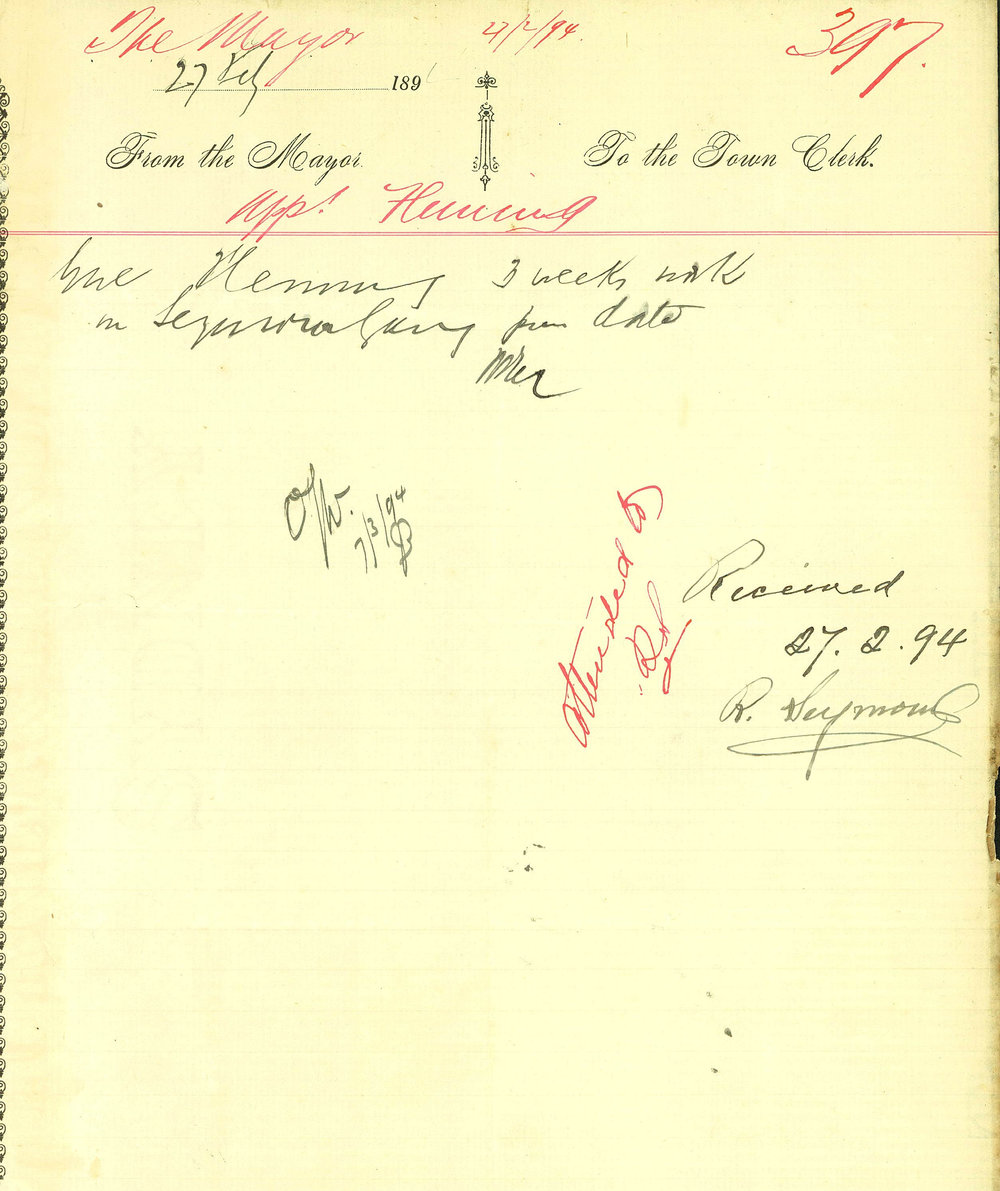 The Mayor 27/2/94 397.
27 Feb 189
From the Mayor. To the Town Clerk.
App! Fleming
Give Fleming 3 weeks work
on Seymours Gang from date
O/W.
7/3/94
Attended to
Received
27. 2. 94
R. Seymour